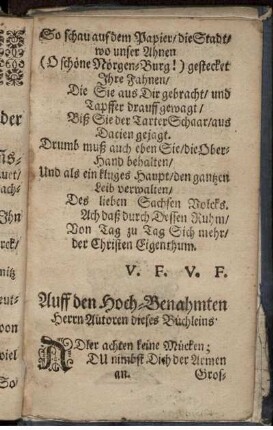 So schau auf dem Papier/die Stadt/
wo unser Ahnen
(O schöne Nörgen-Burg!) gestecket
Ihre Fahnen/
Die Sie aus Dir gebracht/ und
Tapffer drauff gewagt/
Biß Sie der Tarter Schaar/aus
Dacien gejagt.
Drumb muß auch eben Sie/die Ober-
Hand behalten/
Und als ein kluges Haupt/den gantzen
Leib verwalten/
Des lieben Sachsen Volcks.
Ach daß durch Dessen Ruhm/
Von Tag zu Tag Sich mehr/
der Christen Eigenthum.
V. F. V. F.
Auff den Hoch-Benahmten
Herrn Autoren dieses Büchleins
ADler achten keine Mücken;
DU nimbst Dich der Armen
an.
Groß-
der
Ihn
iel
So